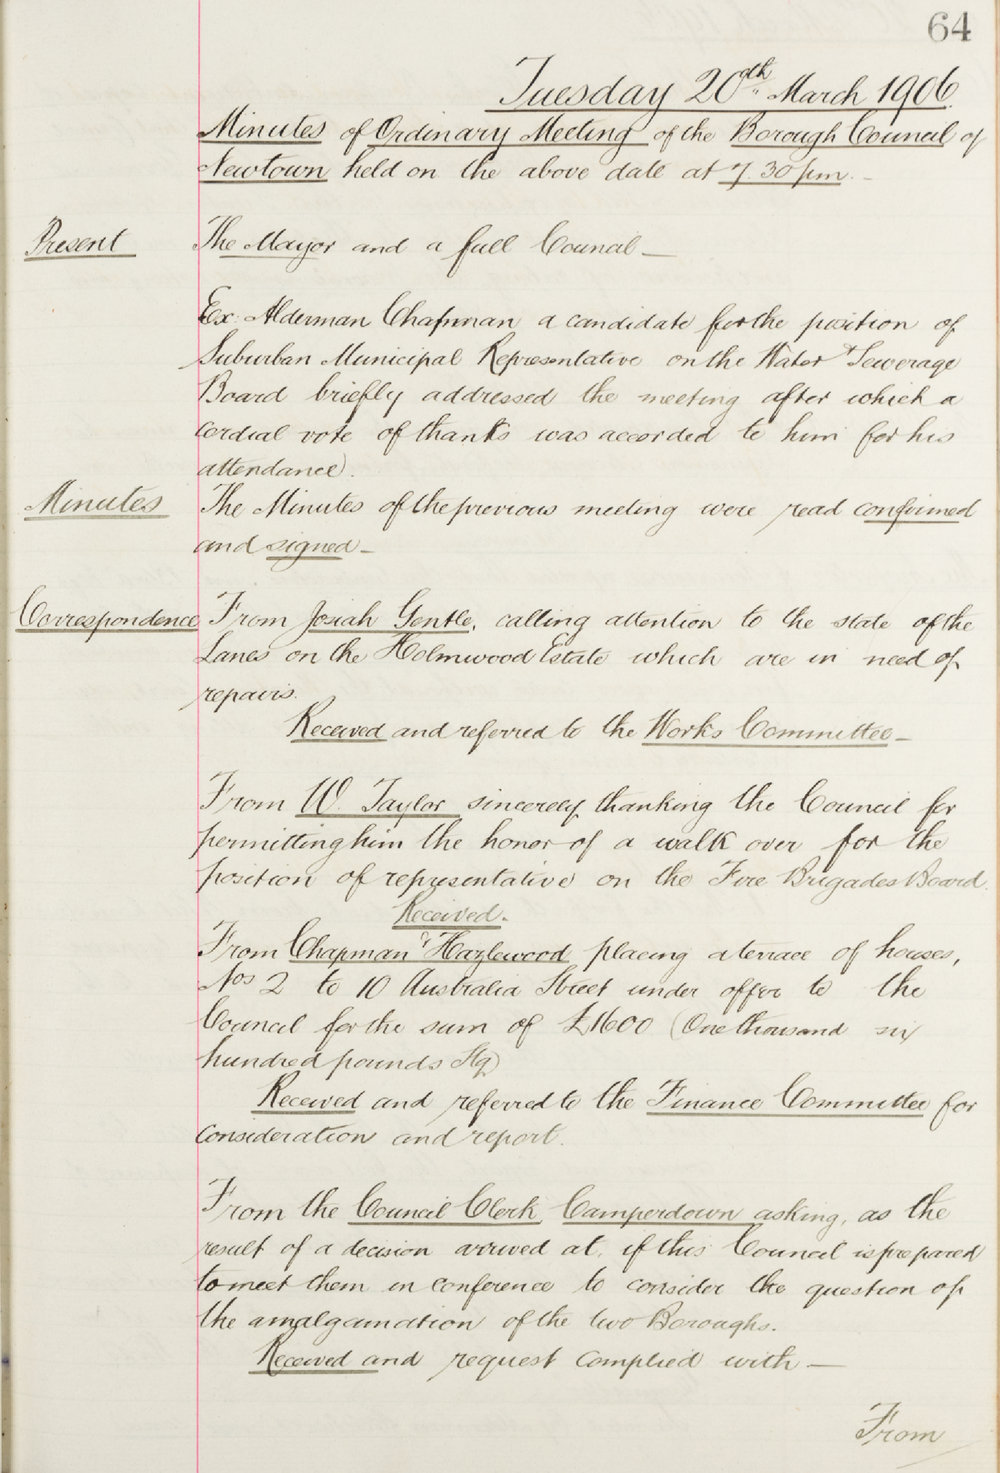 64
Tuesday 20th March 1906
Minutes of Ordinary Meeting of the Borough Council of
Newtown held on the above date at 7.30 pm. -
Present The Mayor and a full Council —
Ex. Alderman Chapman a candidate for the position of
Suburban Municipal Representative on the Water & Sewerage
Board briefly addressed the meeting after which a
cordial vote of thanks was accorded to him for his
attendance.
Minutes The Minutes of the previous meeting were read confirmed
and signed -
Correspondence From Josiah Gentle, calling attention to the state of the
Lanes on the Holmwood Estate which are in need of
repairs.
Received and referred to the Works Committee -
From W. Taylor sincerely thanking the Council for
permitting him the honor of a walk over for the
position of representative on the Fire Brigades Board.
Received.
From Chapman & Hazlewood placing a terrace of houses,
Nos 2 to 10 Australia Street under offer to the
Council for the sum of £1600 (One thousand six
hundred pounds Stg)
Received and referred to the Finance Committee for
consideration and report.
From the Council Clerk Camperdown asking, as the
result of a decision arrived at, if this Council is prepared
to meet them in conference to consider the question of
the amalgamation of the two Boroughs.
Received and request complied with —
From